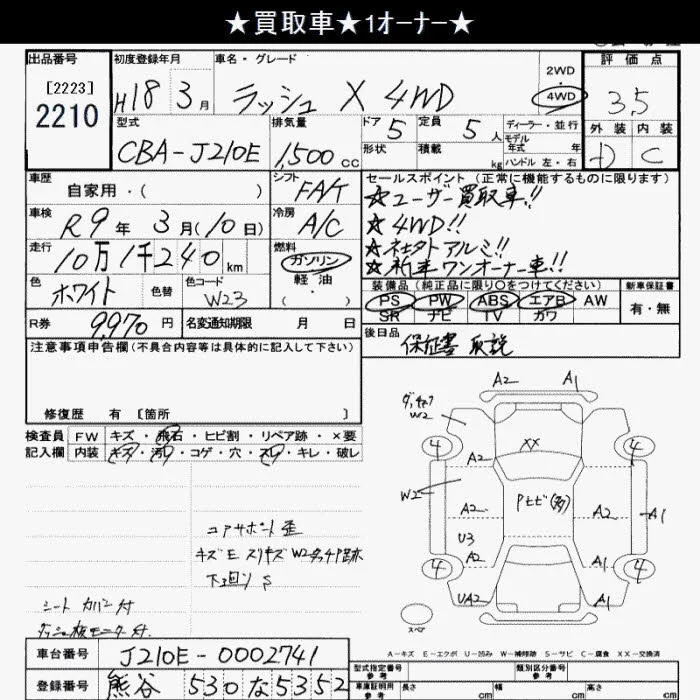 ★買取車★1オーナー★
出品番号
[2223]
2210
初度登録年月
H18 3月
車名・グレード
ラッシュ X 4WD
2WD
・
4WD
評価点
3.5
外装 内装
C
型式
CBA-J210E
排気量
1,500 cc
ドア 5
定員 5人
形状
積載 kg
ディーラー・並行
モデル
年式 年
ハンドル 左・右
車歴
自家用・( )
シフト
FA/T
セールスポイント (正常に機能するものに限ります)
☆ユーザー買取車!!
☆4WD!!
☆社外アルミ!!
☆新車ワンオーナー車!!
車検
R9年 3月(10日)
冷房
A/C
走行
10万1千240km
燃料
ガソリン
軽油
( )
色
ホワイト
色替
色コード
W23
装備品(純正品に限り○をつけてください)
PS PW ABS エアB AW
SR ナビ TV カワ
新車保証書
有・無
R券
9,970円
名変通知期限 月 日
後日品
保証書 取説
注意事項申告欄(不具合内容等は具体的に記入して下さい)
修復歴 有 〔箇所 〕
検査員
記入欄
FW キズ・飛石・ヒビ割・リペア跡・×要
内装 キズ・汚れ・コゲ・穴・スレ・キレ・破レ
コアサポート歪
キズE スリキズ W2タッチP跡
下回りS
シート カバー付
ダッシュ板モニター付.
A2 A1
W2
4 4
XX
A2
W2
Pヒビ(多)
A2 A2 A1
U3
A2 A1
4 4
UA2 A1
スペア
A-キズ E-エクボ U-凹み W-補修跡 S-サビ C-腐食 XX-交換済
車台番号
J210E-0002741
登録番号
熊谷 530 な 5352
型式指定番号
参考
類別区分番号
参考
車庫証明用
参考
長さ cm 幅 cm 高さ cm